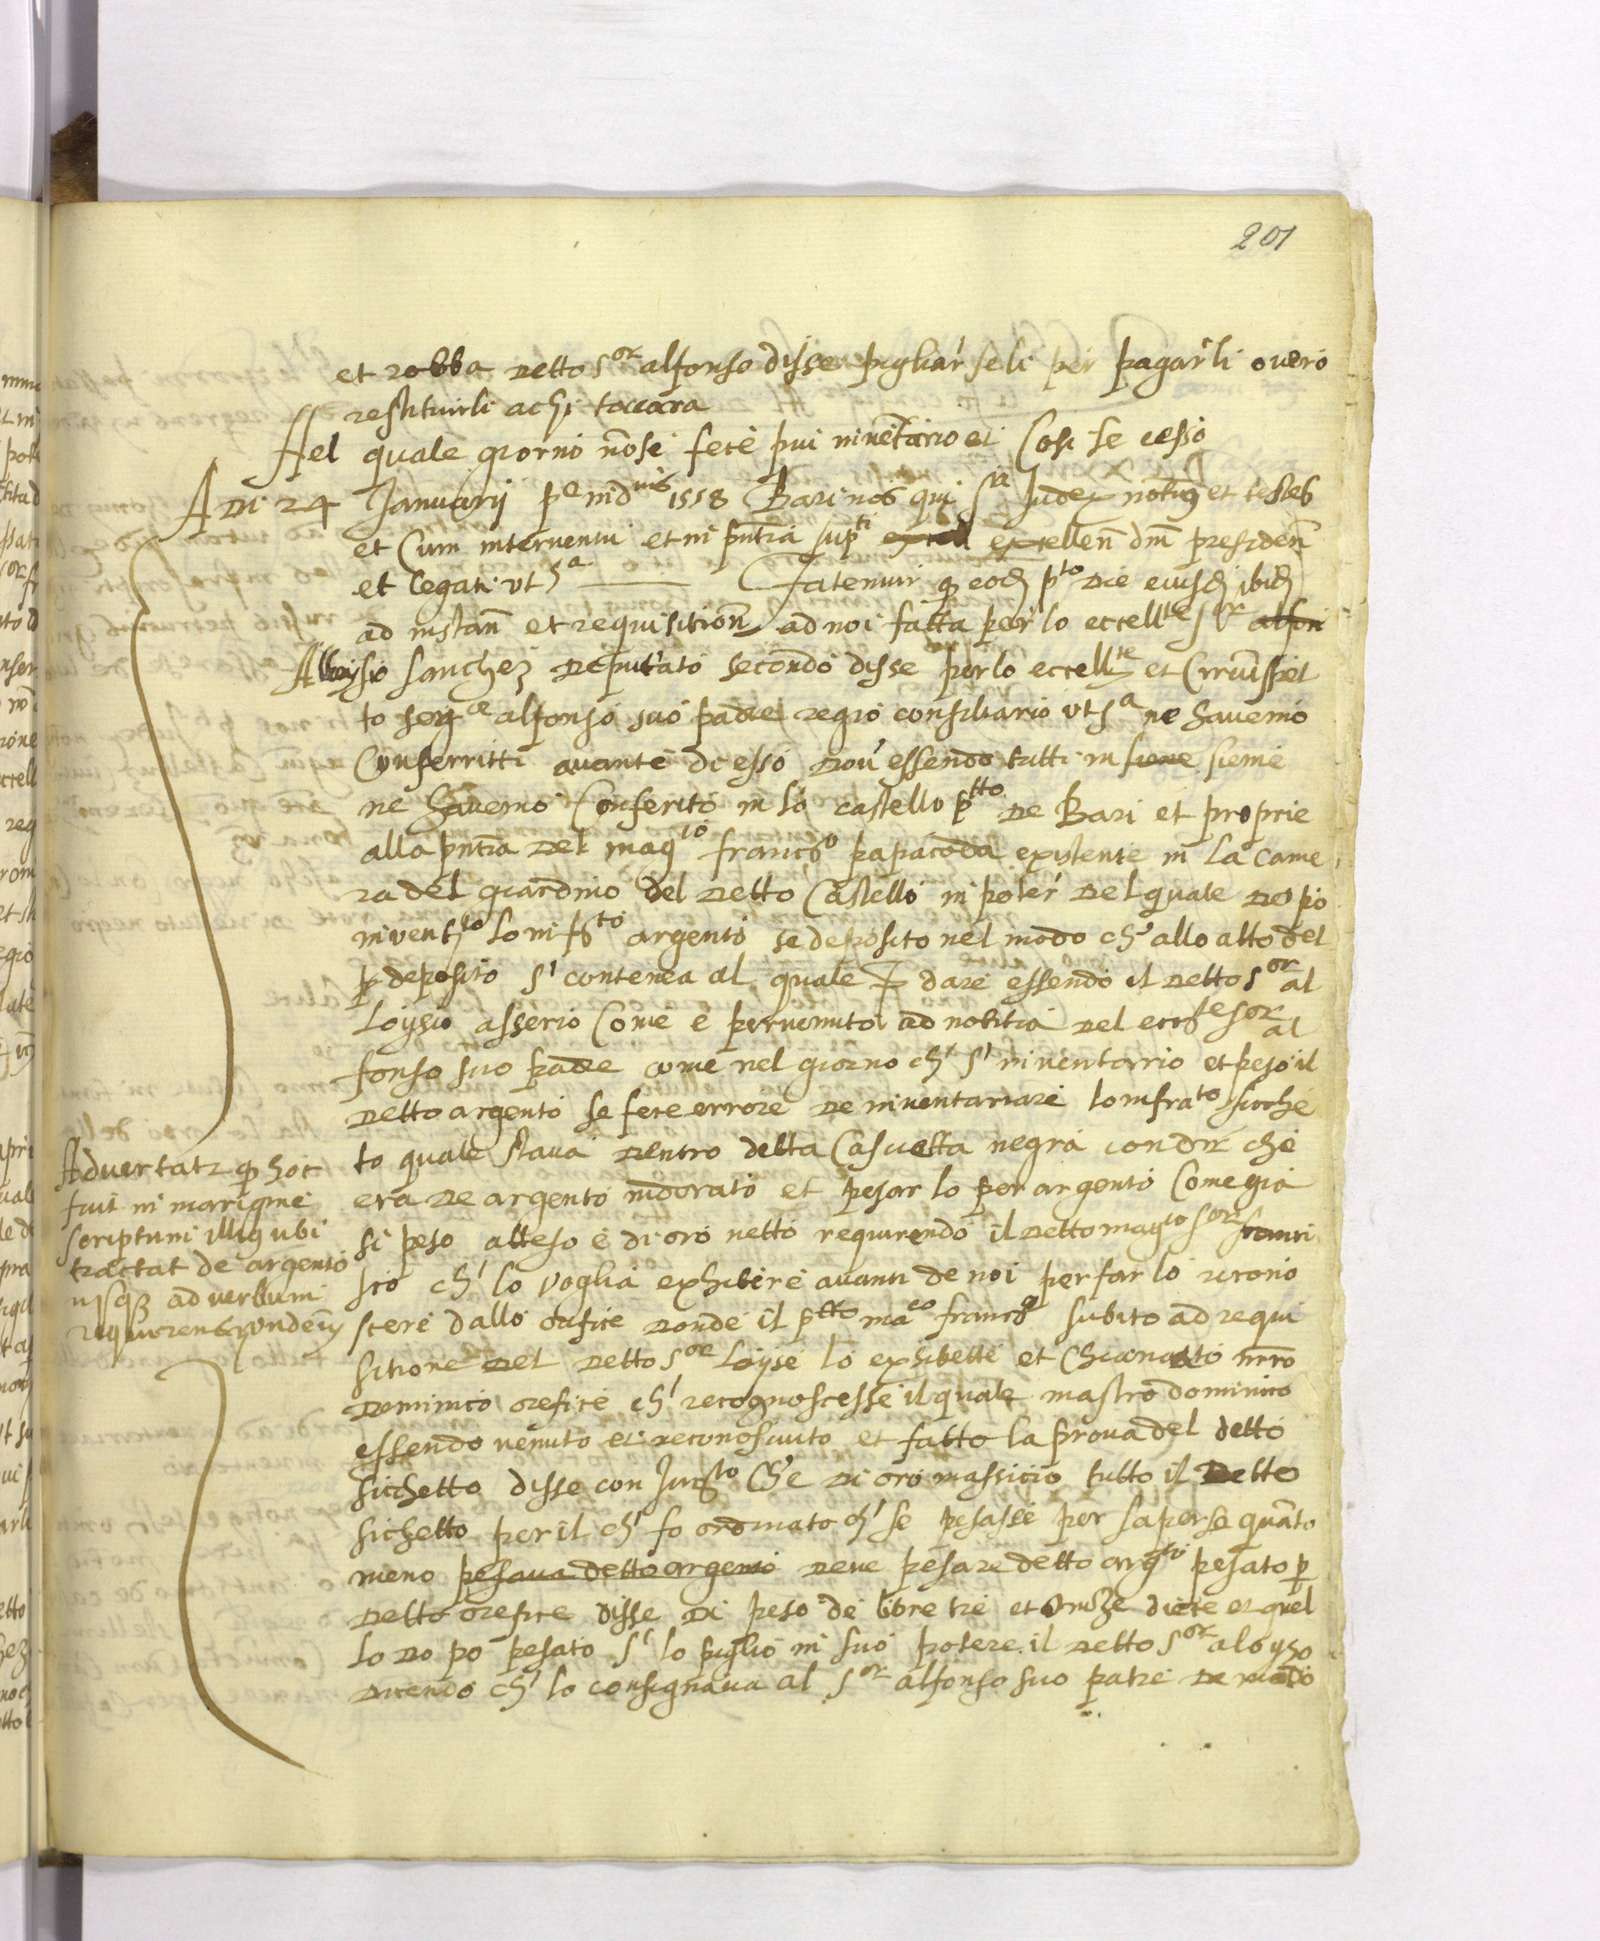 201
et robba detto s.or alfonso disse pigliarseli per pagarli overo
restituirli a chi toccara
Nel quale giorno no se fece piu inventario et Cosi se cesso
A Di 24 Januarij p.e ind.nis 1558 Bari nos qui s.a Judex not.us et testes
et Cum interventu et in pntia sup.ti excell excellen dm presiden
et legati ut s.a Fatemur q eod p.to die eiusd ibid
ad instan et requisition ad noi fatta per lo eccell.te s.or alfon
Alloysio sanchez deputato secondo disse per lo eccell.te et Circuspet
to sor alfonso suo padre regio consiliario ut s.a ne havemo
Conferritti avante di esso dov essendo tutti in sieme sieme
ne havemo Conferito in lo castello p.tto de Bari et proprie
alla pntia del mag.co franc.o papacoda existente in la came
ra del giardino del detto Castello in poter del quale dopo
invent.to lo inf.to argento se deposito nel modo ch allo atto del
p deposito s contenea al quale dare essendo il detto s.or al
loysio asserio Come e pervenuto ad notitia del ecc.te s.or al
fonso suo padre come nel giorno ch s inventario et peso il
detto argento se fece errore de inventariare lo infra.to sicche
to quale stava dentro detta Cascetta negra con dir che
era de argento indorato et pesar lo per argento Come gia
si peso atteso e di oro netto requirendo il detto mag.co s.or franci
sco ch lo voglia exhibire avanti de noi per far lo recono
scere dallo orefice donde il p.tto ma.co franc.o subito ad requi
sitione del detto s.or Loyse lo exhibette et Chiamatto mro
dominico orefice ch recognoscesse il quale mastro dominico
essendo venuto et reconosciuto et fatto la prova del detto
sicchetto disse con Jur.to Ch'e di oro massicio tutto il Detto
sichetto per il ch fo ordinato ch se pesasse per saperse quanto
meno pesava detto argento deve pesare detto arg.to pesato p
detto orefice disse di peso de libre tre et onze diece et quel
lo do po pesato s lo piglio in suo potere il detto s.or aloyso
dicendo ch lo consignava al s.or alfonso suo patre de modo
Advertatr q hoc
fuit in margine
scriptum illiq ubi
tractat de argento
usq ad verbum
requirens